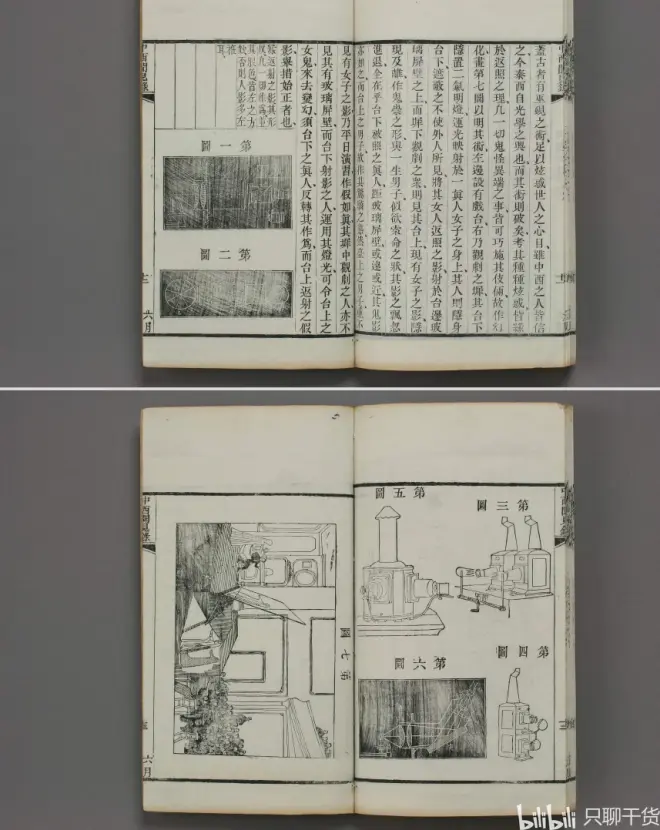 蓋古者有巫覡之術足以炫惑世人之心目雖中西之人皆信
之今泰西自光學之興也而其術則破矣考其種種炫惑
於返照之理凡一切鬼怪異端之事皆可巧施其伎倆故作幻
化畫第七圖以明其術左邊設有戲台右乃觀劇之墀其台下
隱置二氣明燈運光映射於一眞人女子之身上其人則隱身
台下遮蔽之不使外人所見將其女人返照之影射於台邊玻
璃屏壁之上而墀下觀劇之衆則見其台上現有女子之影隱
現及離作鬼祟之形與一生男子傾欲索命之狀其影之飄忽
進退全在乎台下被照之眞人距玻璃屏壁或遠或近其鬼影
之而台上之男子故作其驚駭之態然臺上之男子並不
見有女子之影乃平日演習作假如眞其墀中觀劇之人亦不
見其有玻璃屏壁而台下射影之人運用其燈光可令台上之
女鬼來去變幻須台下之眞人反轉其作爲而台上返射之假
影舉措始正者也
緣返射之影其形
中西聞見錄
第一圖
第二圖
六月
第三圖
第五圖
第四圖
第六圖
第七圖
中西聞見錄
六月
bilibili 只聊干货